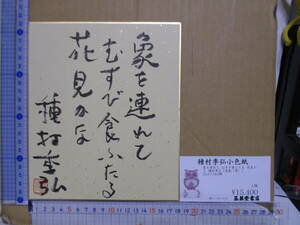 象を連れて
むすび食ふたる
花見かな
種村季弘
種村季弘小色紙
¥15,400